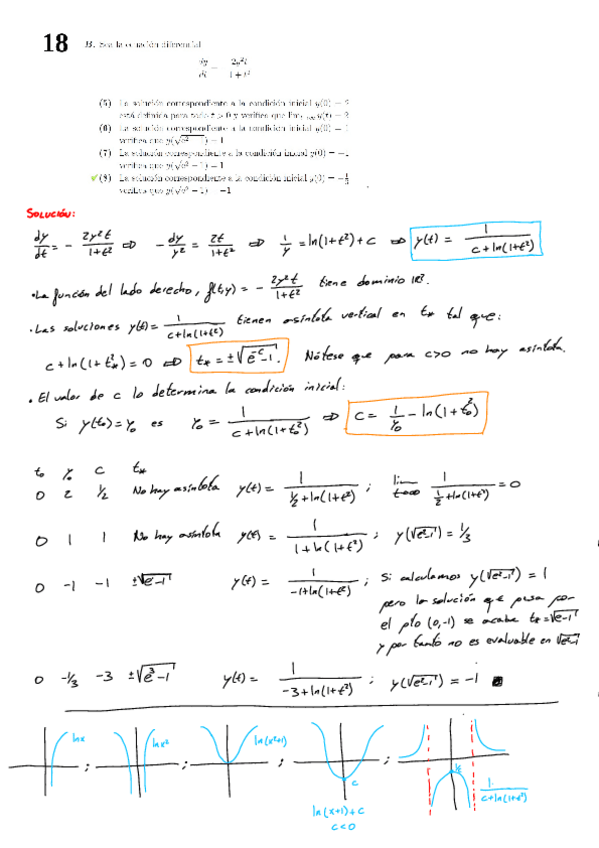 18 B. Sea la ecuación diferencial
dy/dt = − 2y²t/1+t²
(5) La solución correspondiente a la condición inicial y(0) = 2
está definida para todo t > 0 y verifica que lim y(t) = 2
(6) La solución correspondiente a la condición inicial y(0) = 1
verifica que y(√e²−1) = 1
(7) La solución correspondiente a la condición inicial y(0) = −1
verifica que y(√e²−1) = 1
✓(8) La solución correspondiente a la condición inicial y(0) = −1/3
verifica que y(√e²−1) = −1
SOLUCIÓN:
dy/dt = − 2y²t/1+t² ⇒ − dy/y² = 2t/1+t² ⇒ 1/y = ln(1+t²)+c ⇒ y(t) = 1/c+ln(1+t²)
•La función del lado derecho, f(t,y) = − 2y²t/1+t² tiene dominio ℝ².
·Las soluciones y(t) = 1/c+ln(1+t²) tienen asíntota vertical en t* tal que:
c+ln(1+t*²) = 0 ⇒ t* = ±√e⁻ᶜ−1. Nótese que para c>0 no hay asíntota.
• El valor de c lo determina la condición inicial:
Si y(t₀)=y₀ es y₀ = 1/c+ln(1+t₀²) ⇒ c = 1/y₀ − ln(1+t₀²)
t₀ y₀ c t*
0 2 1/2 No hay asíntota y(t) = 1/½+ln(1+t²) ; lim t→∞ 1/½+ln(1+t²) = 0
0 1 1 No hay asíntota y(t) = 1/1+ln(1+t²) ; y(√e²−1) = 1/3
0 −1 −1 ±√e−1 y(t) = 1/−1+ln(1+t²) ; Si calculamos y(√e²−1) = 1
pero la solución que pasa por
el pto (0,−1) se acaba t*=√e−1
y por tanto no es evaluable en √e²−1
0 −1/3 −3 ±√e³−1 y(t) = 1/−3+ln(1+t²) ; y(√e²−1) = −1 ■
lnx ; lnx² ; ln(x²+1) ; c ; 1/c
ln(x+1)+c 1/c+ln(1+t²)
c<0